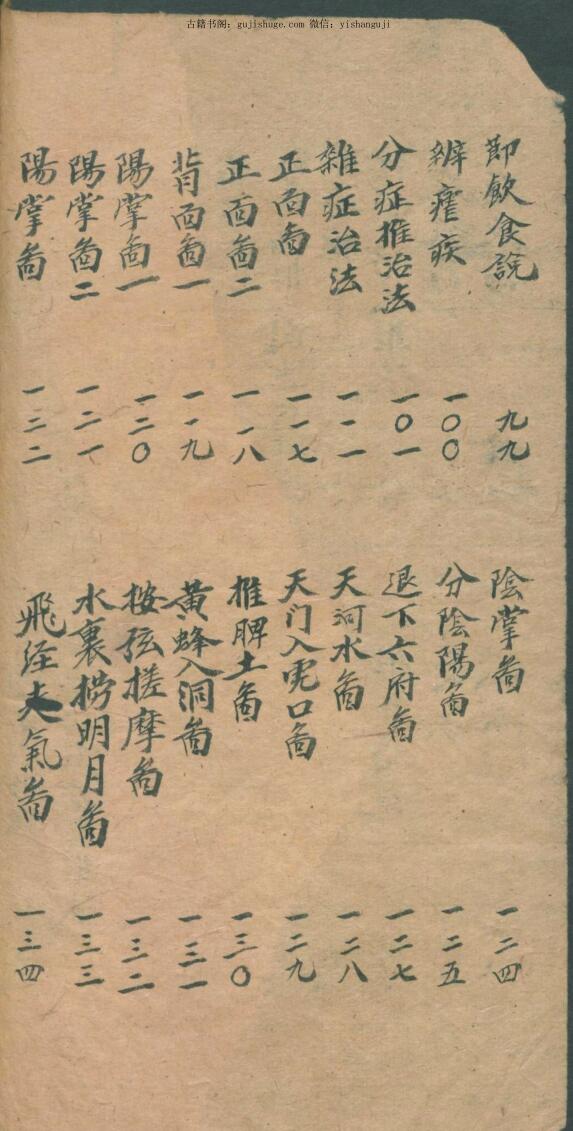 古籍书阁：gujishuge.com 微信：yishanguji
節飲食說 九九
辨瘧疾 一〇〇
分症推治法 一〇一
雜症治法 一一一
正面啚 一一七
正面啚二 一一八
背面啚一 一一九
陽掌啚一 一二〇
陽掌啚二 一二一
陽掌啚 一三二
陰掌啚 一二四
分陰陽啚 一二五
退下六府啚 一二七
天河水啚 一二八
天门入虎口啚 一二九
推脾土啚 一三〇
黃蜂入洞啚 一三一
按弦搓摩啚 一三二
水裏捞明月啚 一三三
飛经走氣啚 一三四